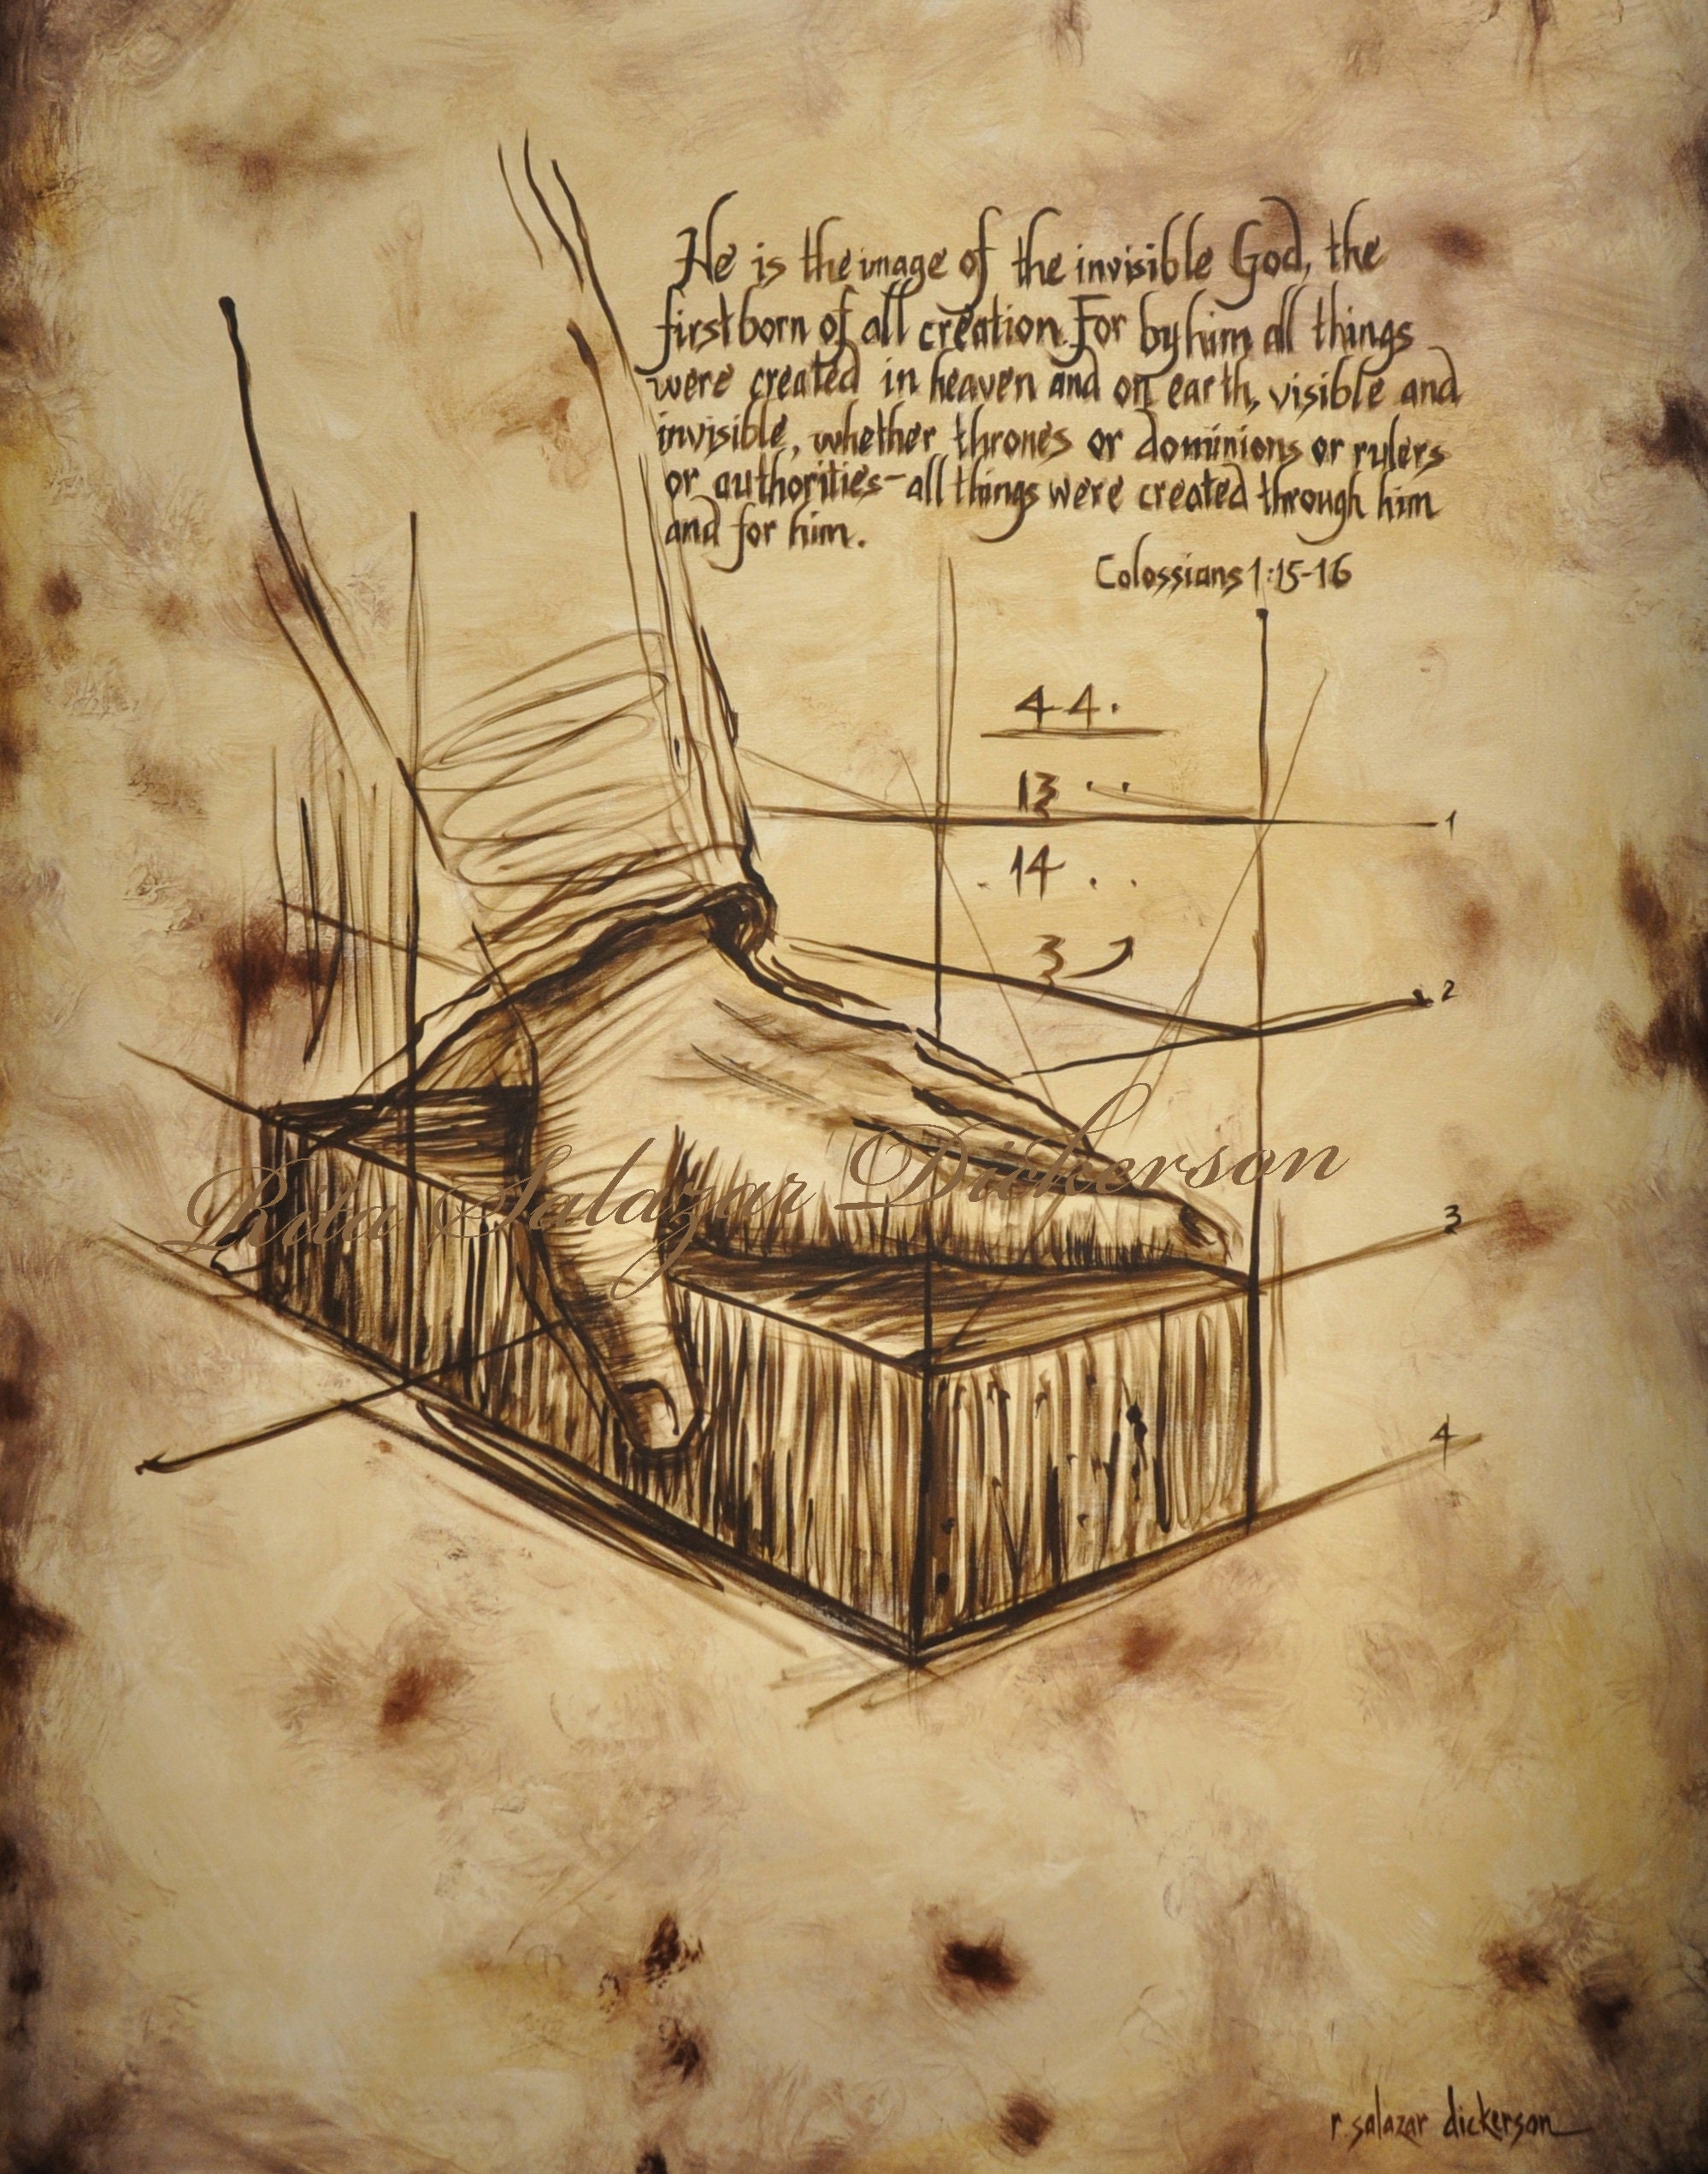 He is the image of the invisible God, the
firstborn of all creation. For by him all things
were created in heaven and on earth, visible and
invisible, whether thrones or dominions or rulers
or authorities-all things were created through him
and for him.
Colossians 1:15-16
44.
13 . .
1
. 14 . .
3
2
Rita Salazar Dickerson
3
4
r. salazar dickerson